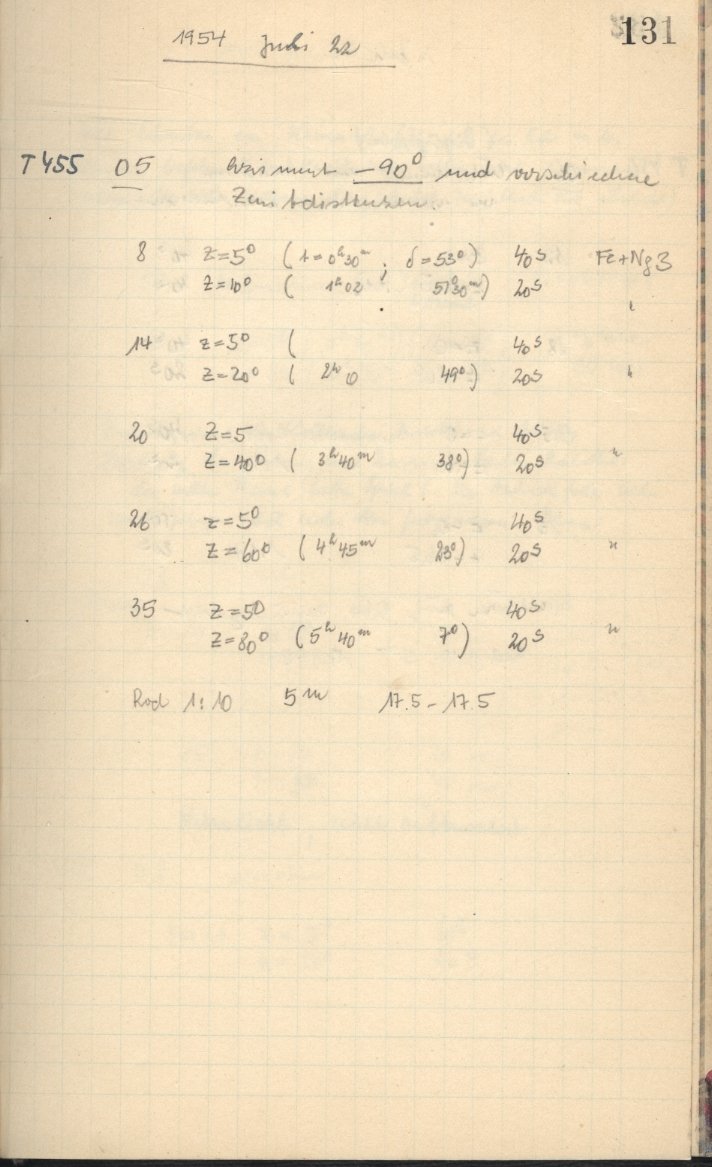 131
1954 Juli 22
T455 05 Azimut -90° und verschiedene
Zenitdistanzen.
8 Z=5° (t=0ʰ30ᵐ ; δ=53°) 40ˢ Fe+Ng3
Z=10° ( 1ʰ02 51°30ᵐ) 20ˢ "
14 Z=5° ( 40ˢ
Z=20° ( 2ʰ0 49°) 20ˢ "
20 Z=5 40ˢ
Z=40° ( 3ʰ40ᵐ 38°) 20ˢ "
26 Z=5° 40ˢ
Z=60° ( 4ʰ45ᵐ 23°) 20ˢ "
35 Z=5° 40ˢ
Z=80° (5ʰ40ᵐ 7°) 20ˢ "
Rod 1:10 5ᵐ 17.5-17.5